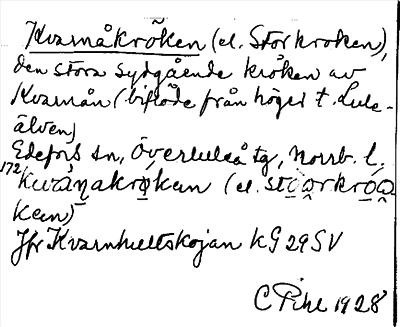 Kvarnåkröken (el. Storkroken),
den stora sydgående kröken av
Kvarnån (biflöde från höger t. Lule-
älven)
Edefors sn, Överluleå tg, Norrb. l.
172 kvánakro̱kan (el. sto̱o̱rkro̱o̱
ken)
Jfr Kvarnhultskojan kG 29 SV
C Pihl 1928